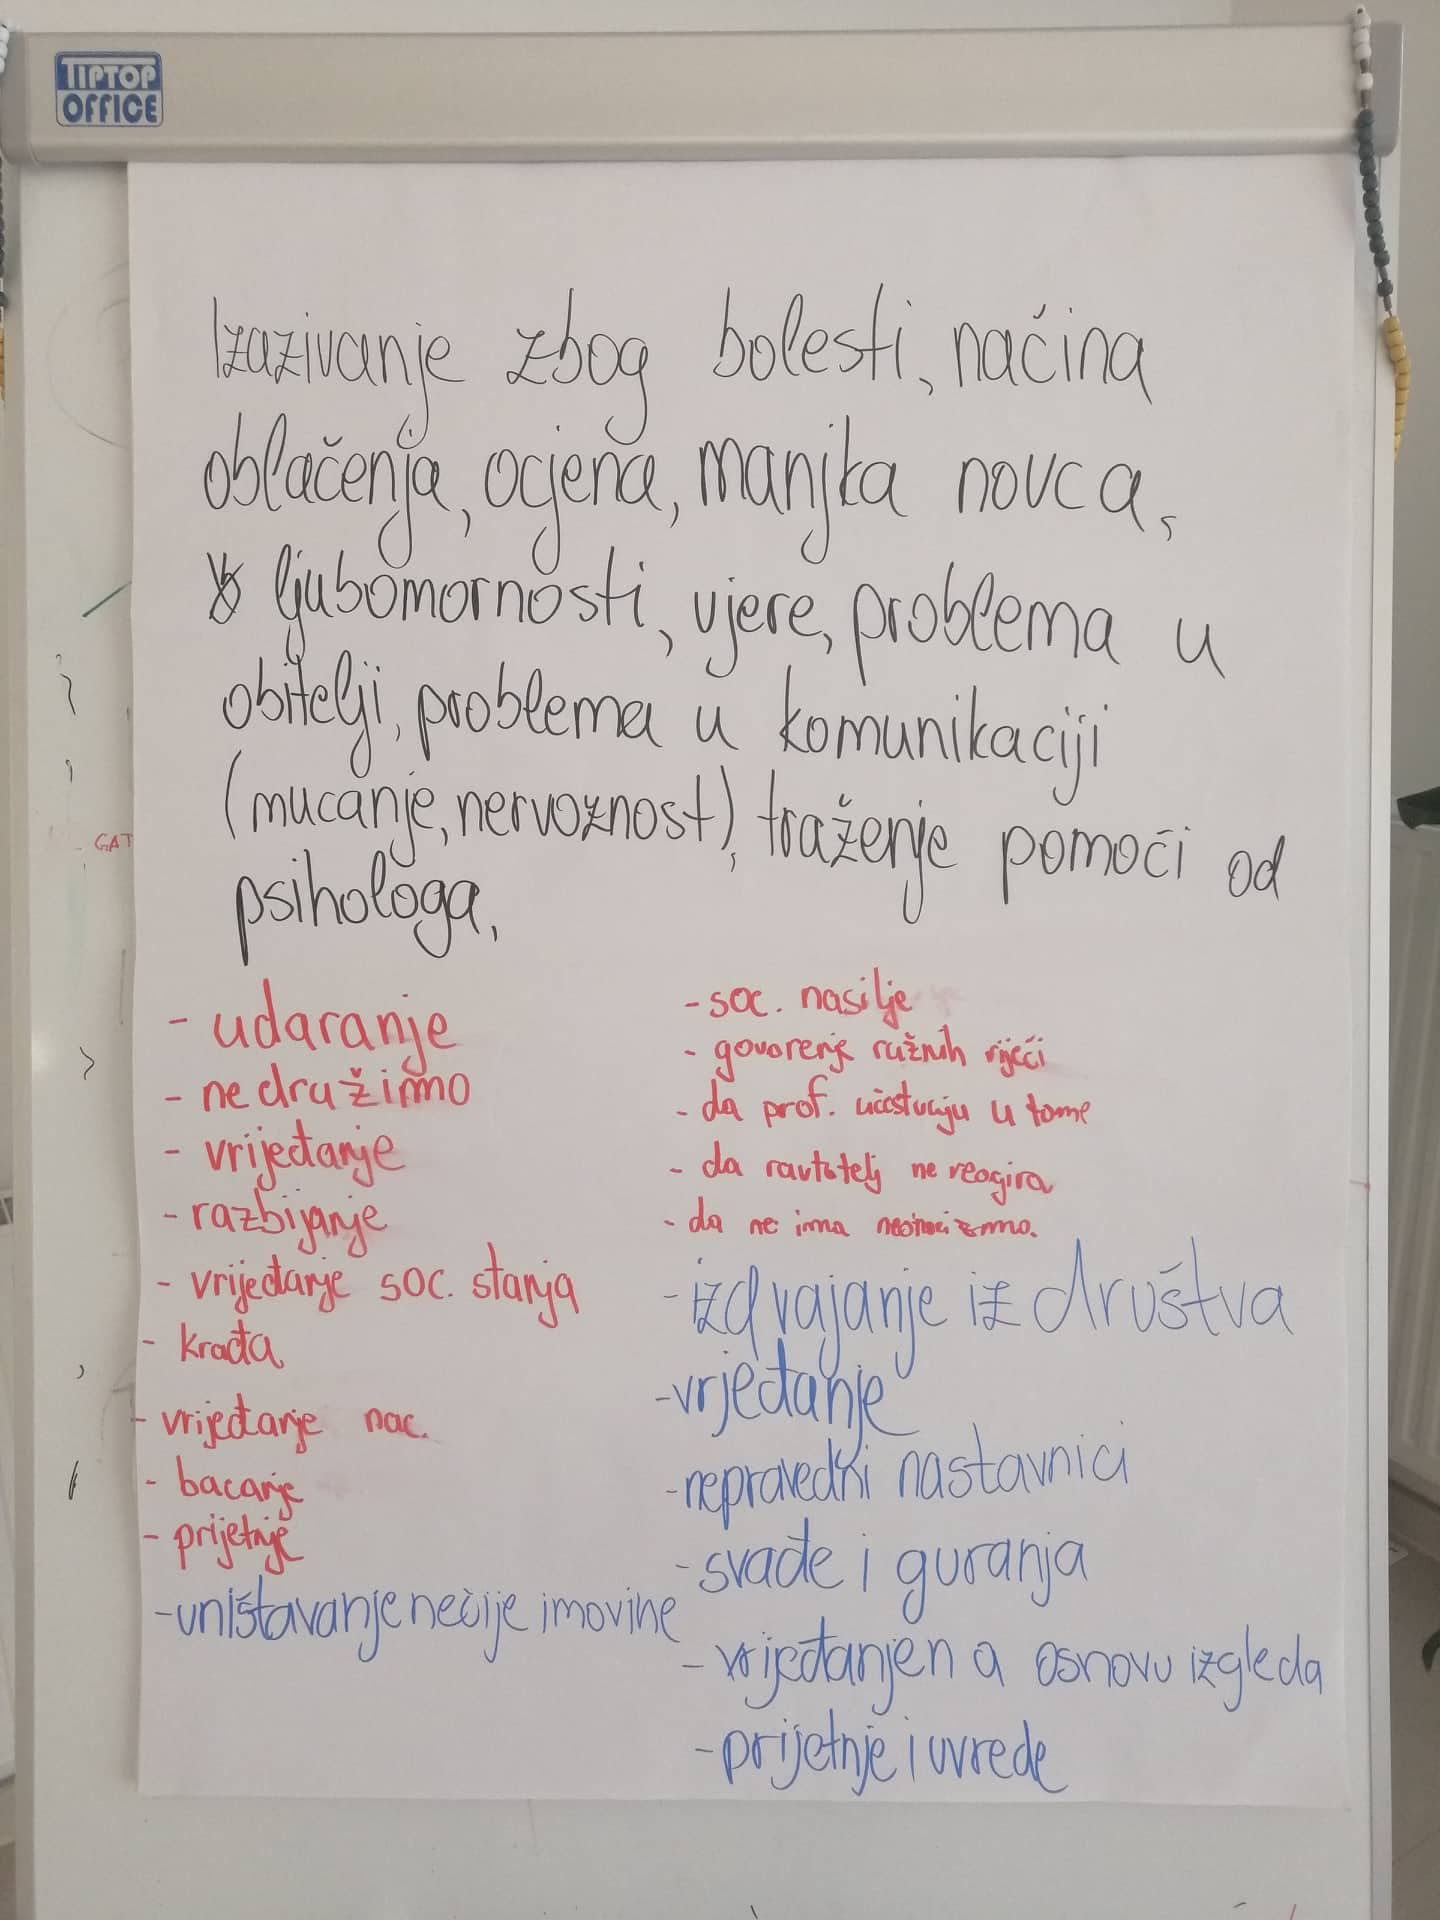 TIPTOP
OFFICE
Izazivanje zbog bolesti, naćina
oblačenja, ocjena, manjka novca,
ljubomornosti, vjere, problema u
obitelji, problema u komunikaciji
(mucanje, nervoznost), traženje pomoći od
psihologa,
- udaranje
- ne družimo
- vrijeđanje
- razbijanje
- vrijeđanje soc. stanja
- krađa
- vrijeđanje nac.
- bacanje
- prijetnje
- uništavanje nečije imovine
- soc. nasilje
- govorenje ružnih riječi
- da prof. učestvuju u tome
- da ravtatelj ne reagira
- da ne ima
- izdvajanje iz društva
- vrjeđanje
- nepravedni nastavnici
- svađe i guranja
- vrijeđanjen a osnovu izgleda
- prijetnje i uvrede
GAT